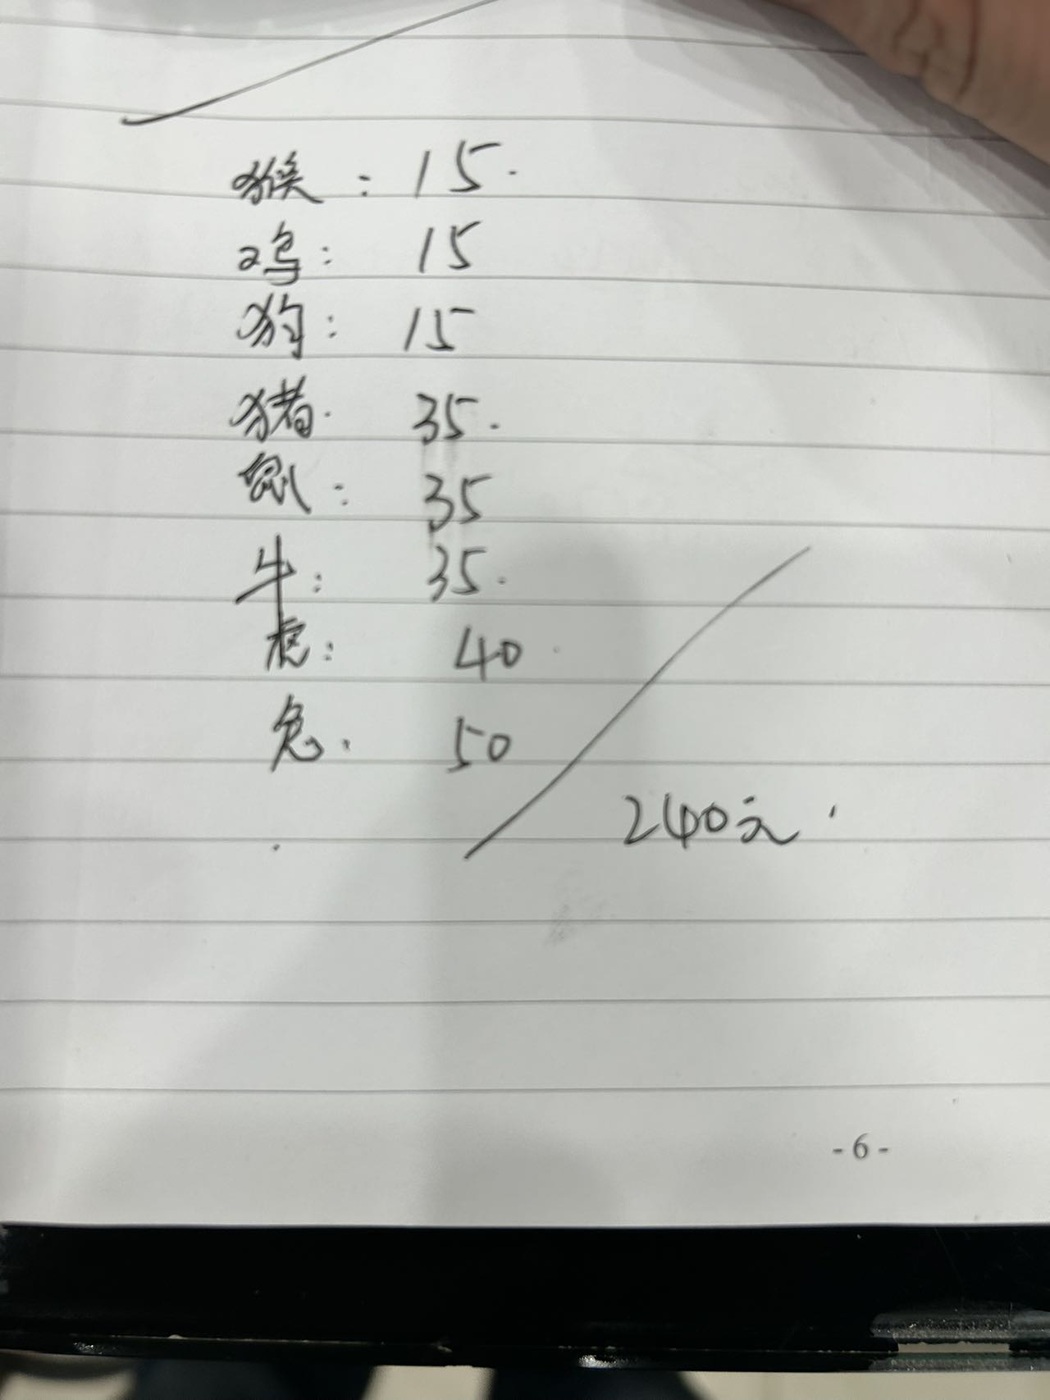 猴：15.
鸡：15
狗：15
猪. 35.
鼠：35
牛：35.
虎：40
兔. 50
240元.
- 6 -